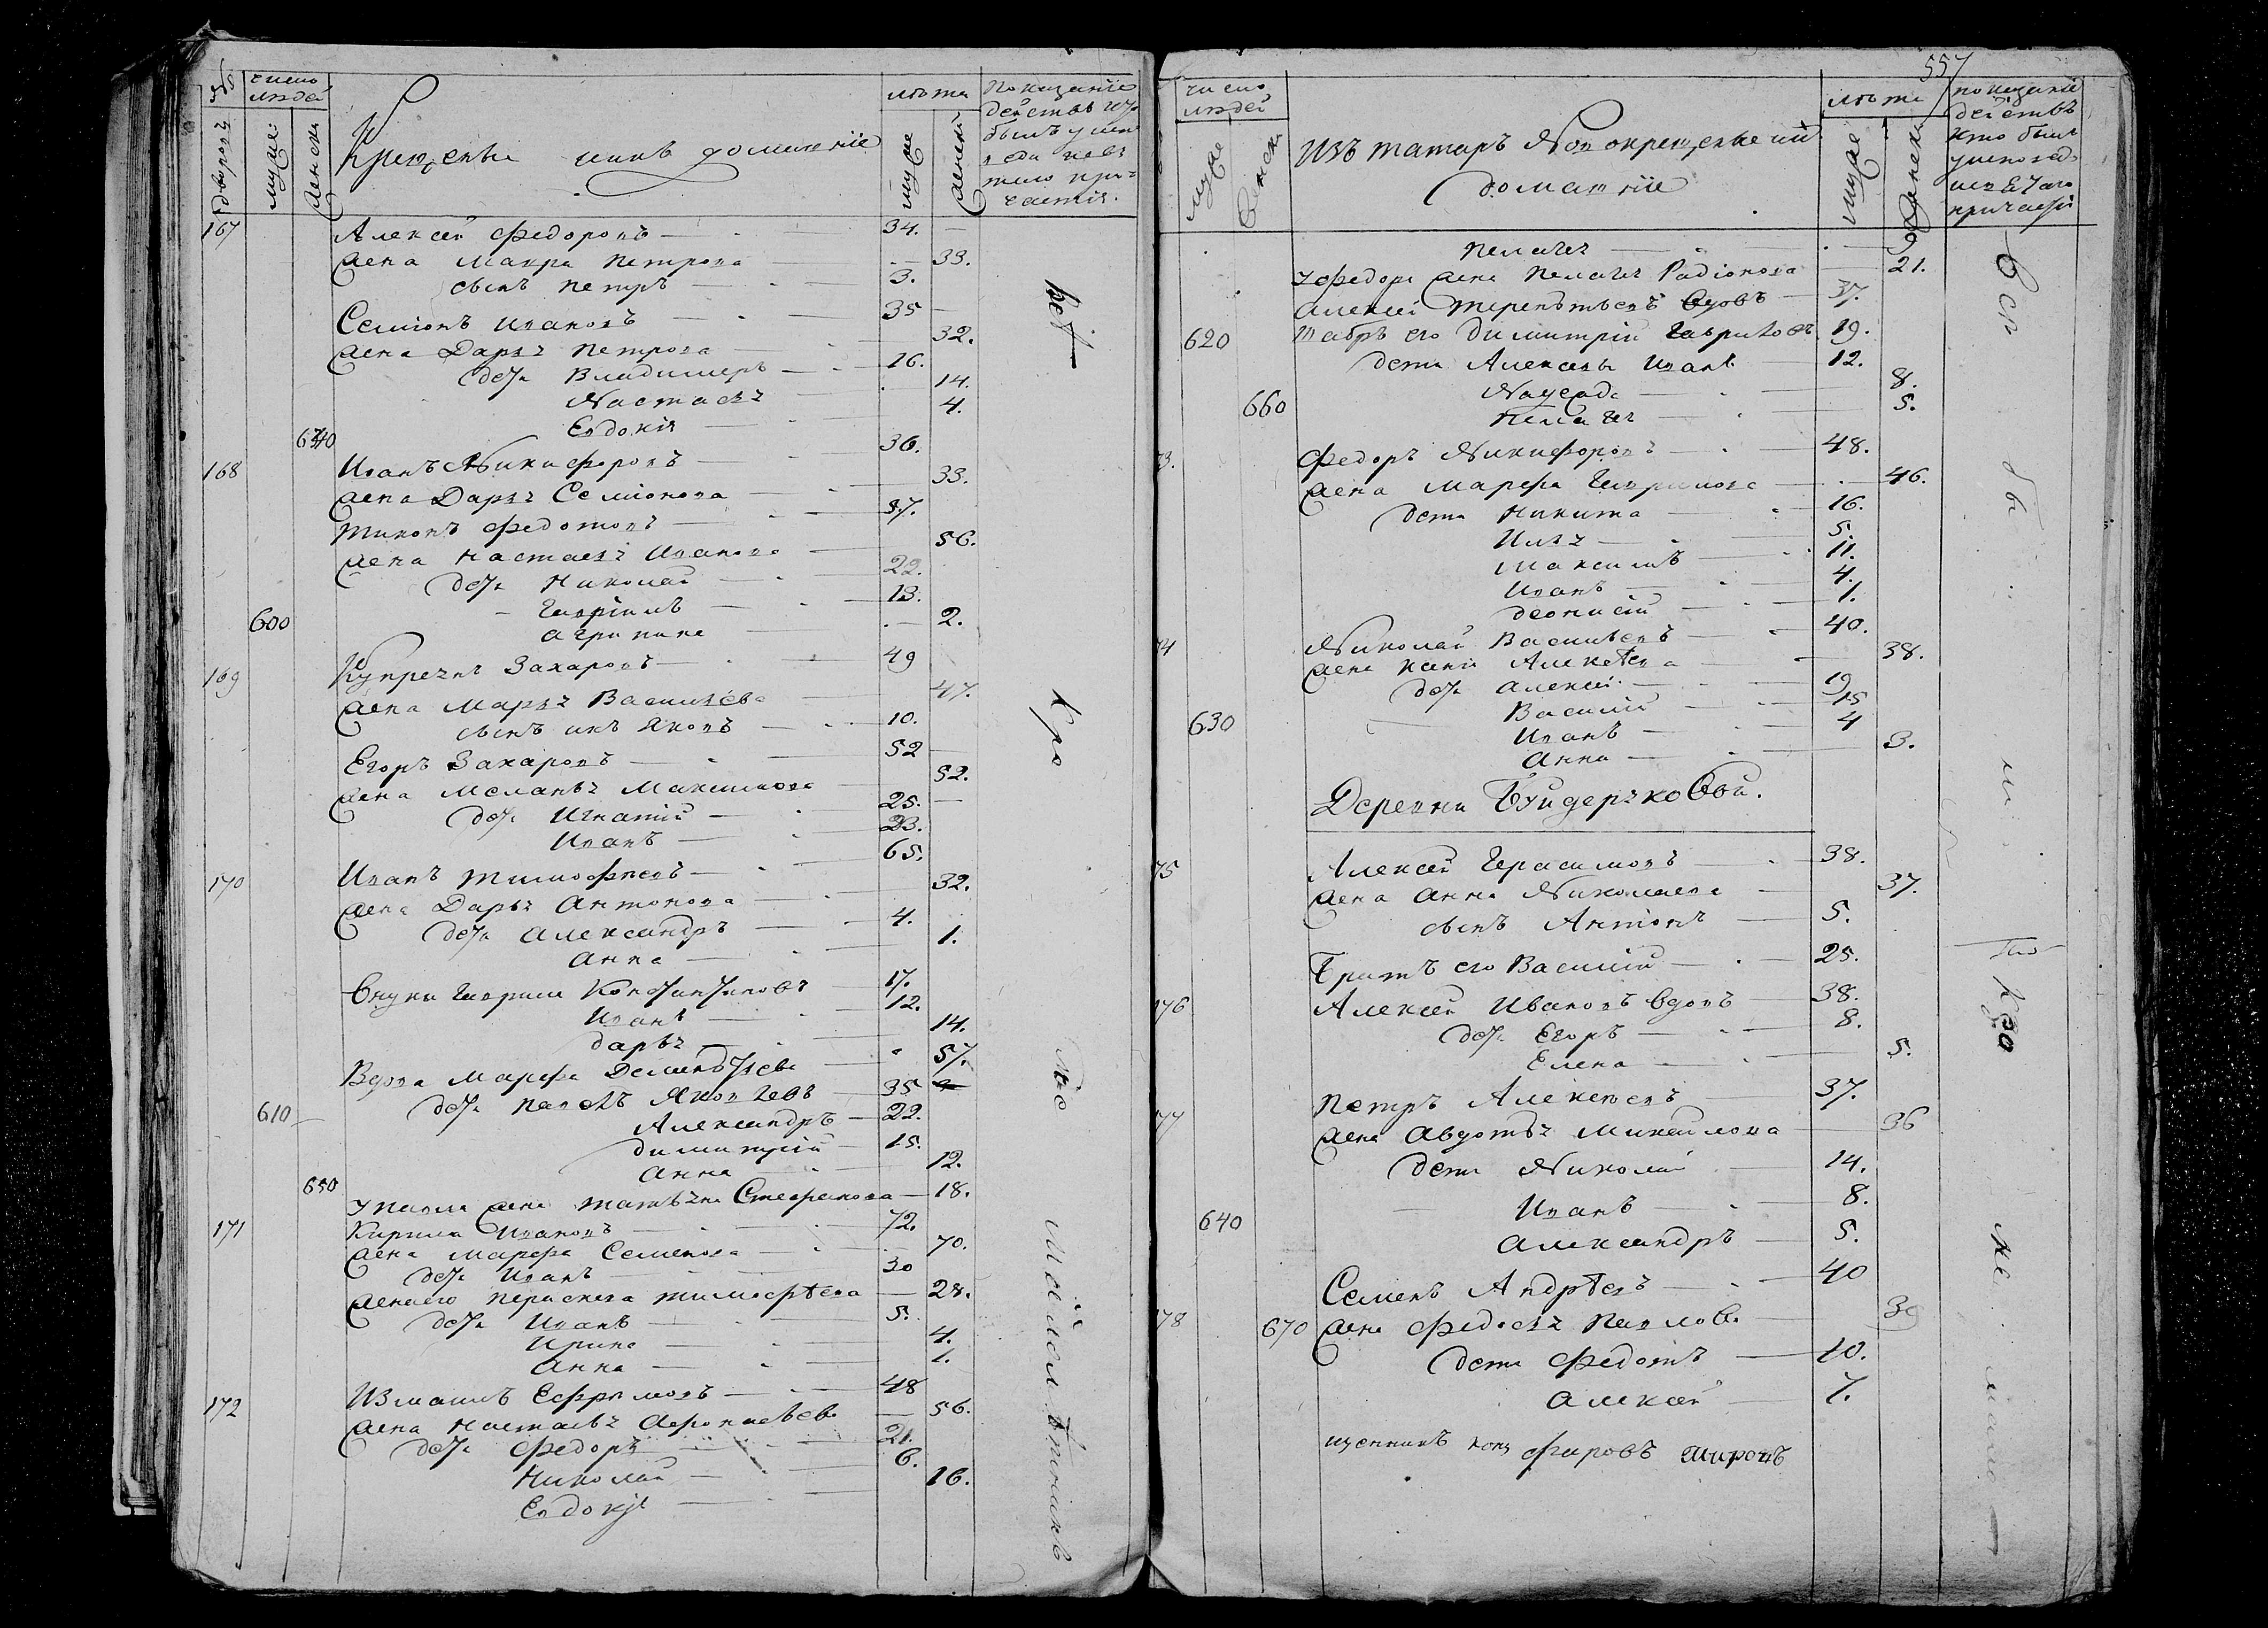 № дворовъ
число людей
муже:
женски
Крещены и ихъ домашнiе
лѣта
муже
женски
167
Алексей Федоровъ 34.
жена Макра Петрова 33.
сынъ Петръ 3.
Семiонъ Ивановъ 35
жена Дарья Петрова 32.
дети Владимеръ 16.
Настасья 14.
640 Евдокiя 4.
168 Иванъ Никифоровъ 36.
жена Дарья Семiонова 33.
Тихонъ Федотовъ 57.
жена Настасья Иванова 56.
дети Николай 22.
Гаврiилъ 13.
600 Агрипина 2.
169 Купреянъ Захаровъ 49
жена Марья Васильева 47.
сынъ ихъ Яковъ 10.
Егоръ Захаровъ 52
жена Меланья Максимова 52.
дети Игнатiй 25.
Иванъ 23.
170 Иванъ Тимофеевъ 65.
жена Дарья Антонова 32.
дети Александръ 4.
Анна 1.
Внуки Гаврила Константиновъ 17.
Иванъ 12.
Дарья 14.
Вдова Марфа Дементьева 57.
610 дети Павелъ Яковлевъ 35
Александръ 22.
Димитрiй 15.
Анна 12.
650 У Павла жена Татьяна Стефанова 18.
171 Кирила Ивановъ 72.
жена Марфа Семенова 70.
дети Иванъ 30
жена его Парасковa Тимофѣева 28.
дети Иванъ 5.
Ирина 4.
Анна 1.
172 Измаилъ Ефримовъ 48
жена Настасья Афонасьева 56.
дети Федоръ 21.
Николай 6.
Евдокiя 16.
Всѣ
кро
мѣ
малолѣтнихъ
557
число людей
муже
женски
Изъ татаръ Новокрещеные и
домашнiе
лѣта
муже
женски
Пелагея
У Федора жена Пелагея Радiонова 21.
Алексей Терентьевъ вдовъ 37.
620 Шабръ его Димитрiй Гавриловъ 19.
дети Алексея Иванъ 12.
Наусада 8.
660 Пелагея 5.
73. Федоръ Никифоровъ 48.
жена Марфа Гаврилова 46.
дети Никита 16.
Илья 5.
Максимъ 11.
Иванъ 4.
Деонисiй 1.
74 Николай Васильевъ 40.
жена Ксенiя Алексѣева 38.
дети Алексей 19
Василiй 15
630 Иванъ 4
Анна 3.
Деревни Биидеряковой.
75 Алексей Герасимовъ 38.
жена Анна Николаева 37.
сынъ Антонъ 5.
Братъ его Василiй 25.
176 Алексей Ивановъ вдовъ 38.
дети Егоръ 8.
Елена 5.
77 Петръ Алексеевъ 37.
жена Авдотья Михайлова 36
дети Николай 14.
640 Иванъ 8.
Александръ 5.
Семенъ Андрѣевъ 40
78 670 жена Федосья Павлова 39
дети Федотъ 10.
Алексей 7.
щенникъ
Вси
бы
ли
Кро
ме
мало